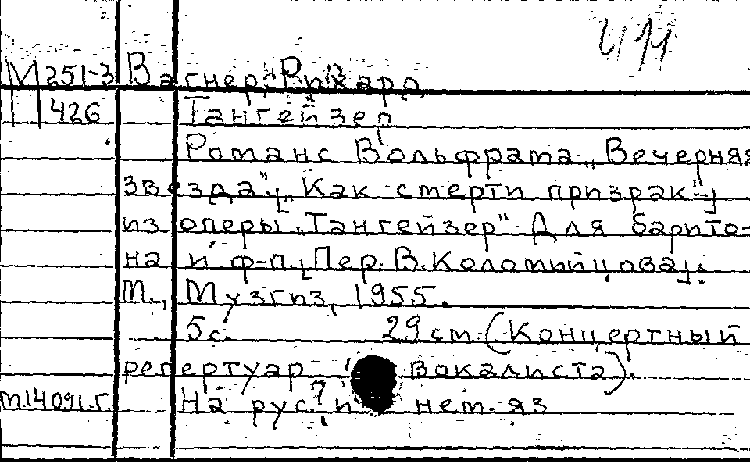 М251-3 Вагнер, Рихард
426 Тангейзер
Романс Вольфрама „Вечерняя
звезда" [„Как смерти призрак"]
из оперы „Тангейзер". Для барито-
на и ф-п. [Пер. В. Коломийцова].
М., Музгиз, 1955.
5 с. 29 см. (Концертный
репертуар вокалиста).
м.14091.г. На рус. и нем. яз